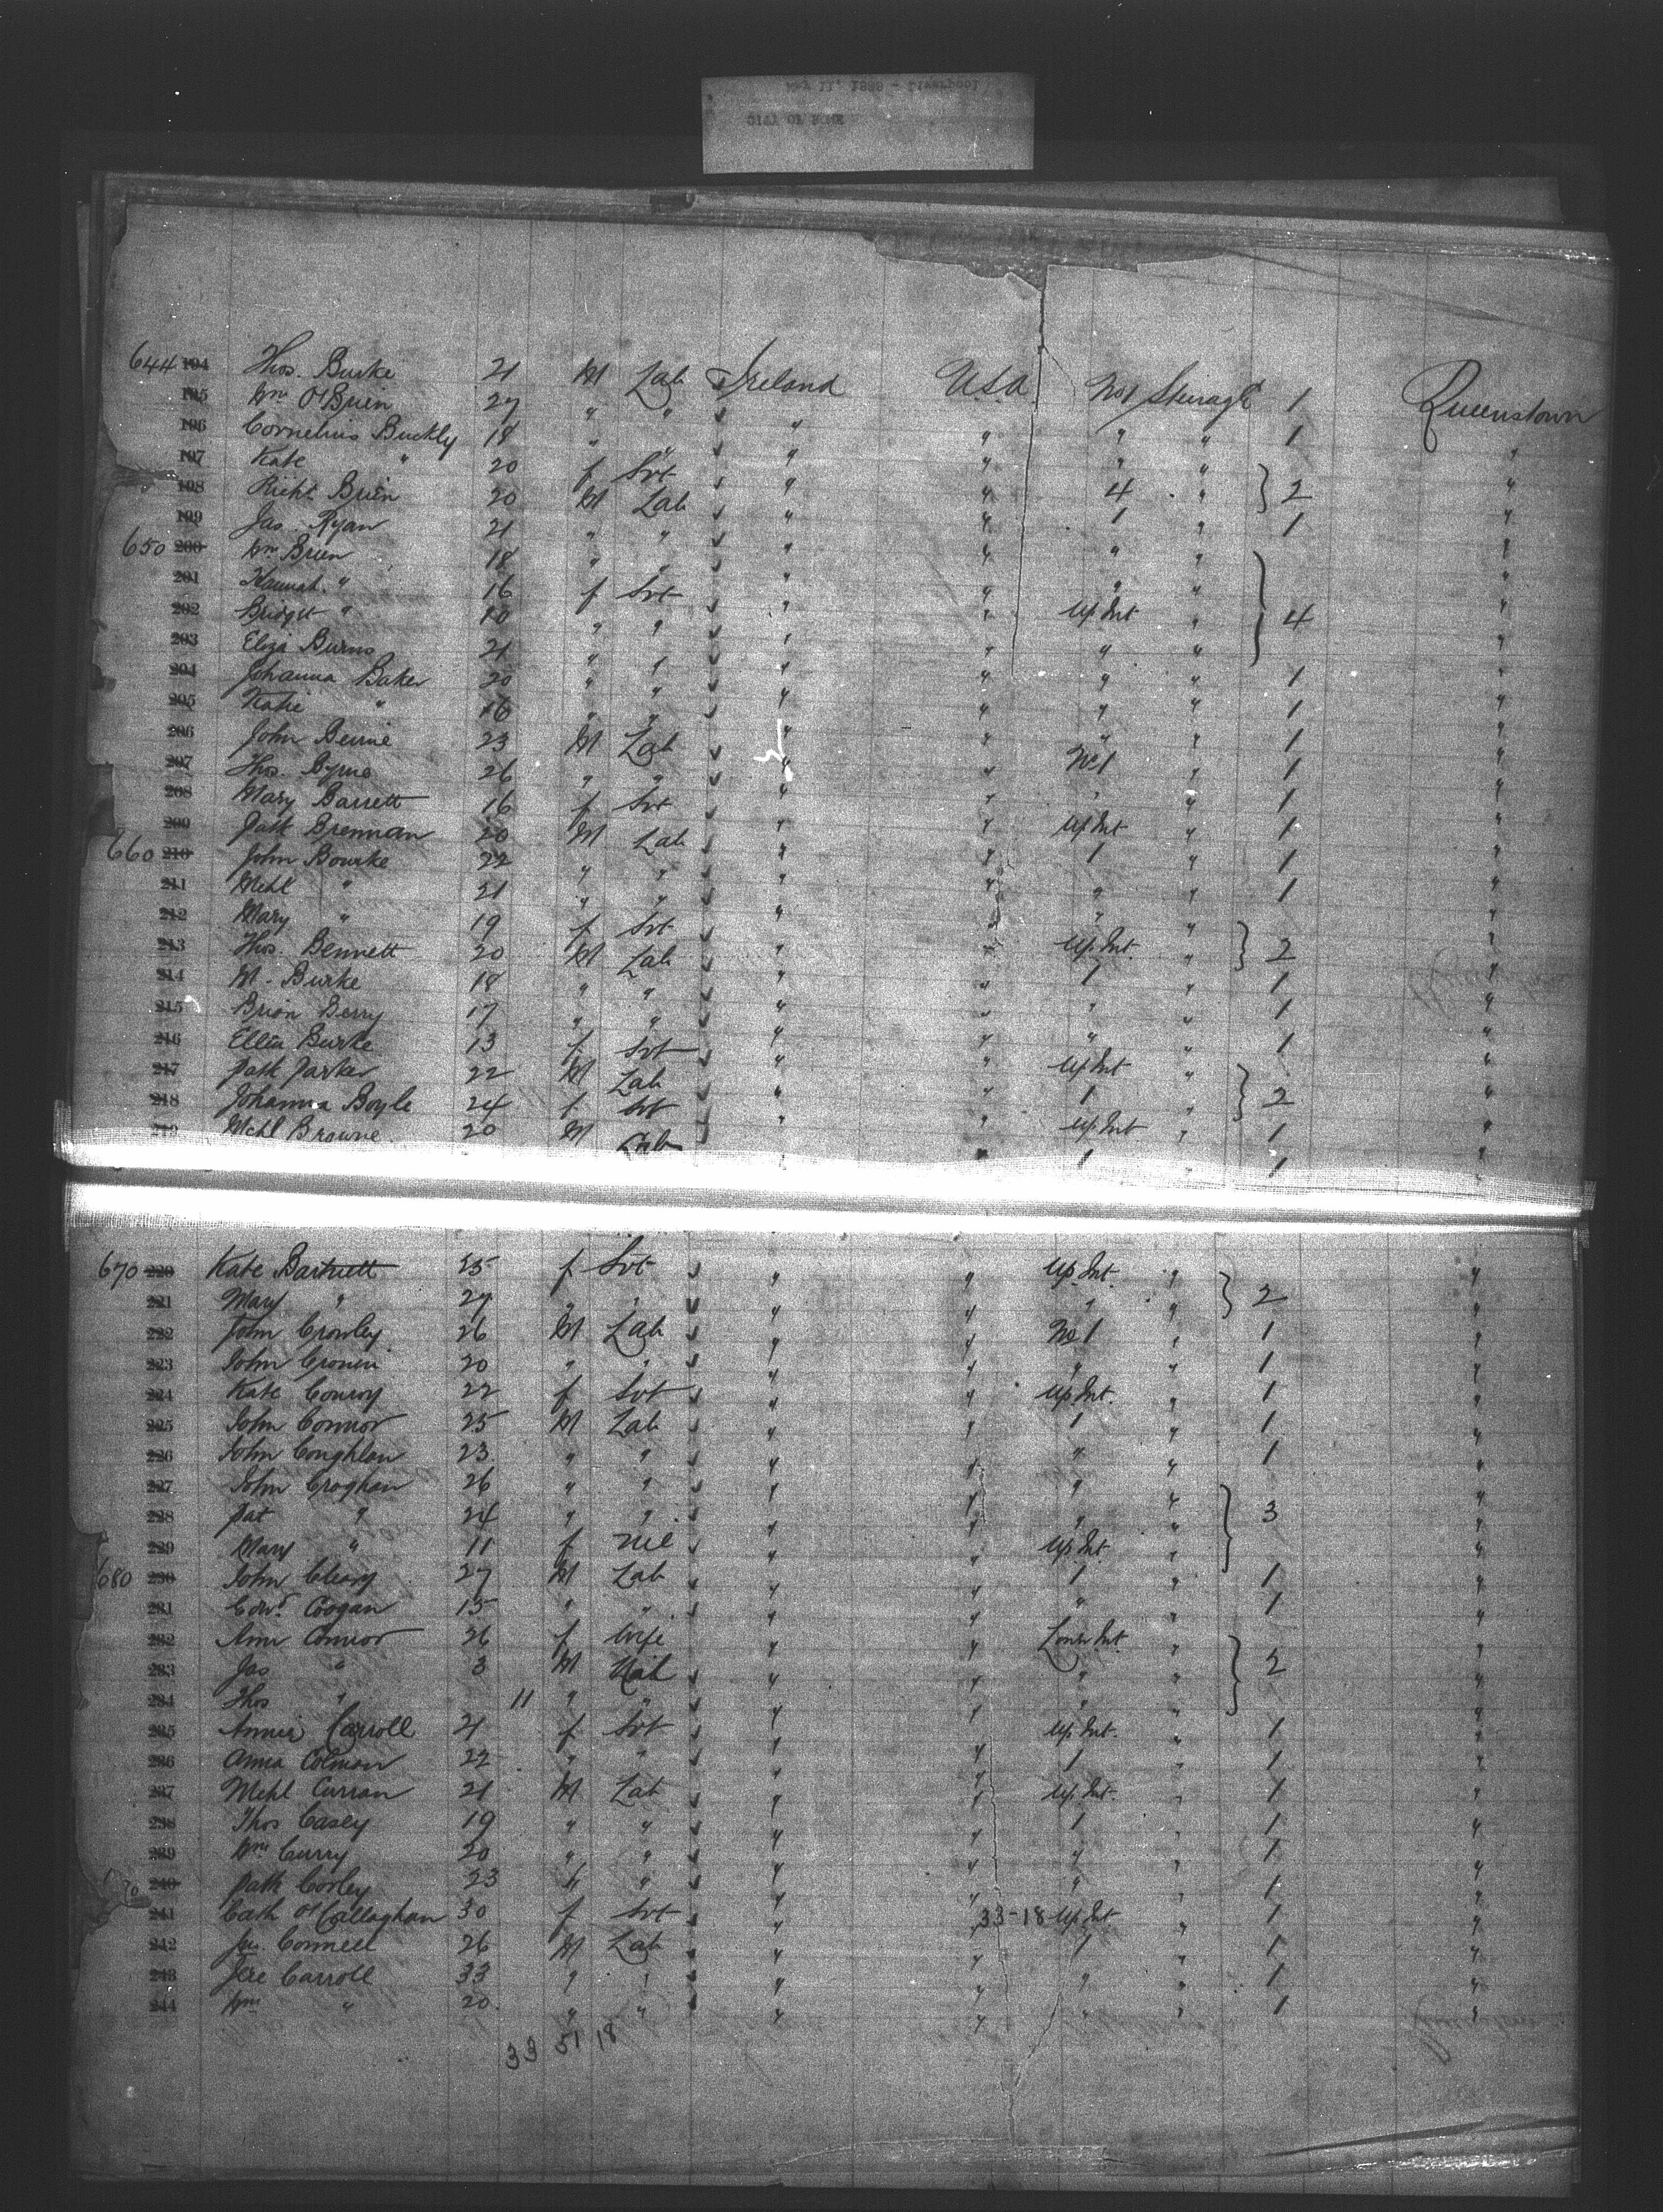 CITY OF ROME
644 194 Thos. Burke 21 M Lab Ireland U.S.A No 1 Steerage 1 Queenstown
195 Wm O'Brien 27 " " " " " " 1 "
196 Cornelius Buckly 18 " " " " " "
197 Kate " 20 f Svt " " 4 " } 2 "
198 Richd Brien 20 M Lab " " 1 " 1 "
199 Jas. Ryan 21 " " " " " " "
650 200 Wm Brien 18 " " " " " " "
201 Hannah " 16 f Svt " " Up Int " } 4 "
202 Bridget " 10 " " " " " " "
203 Eliza Burns 21 " " " " " " 1 "
204 Johanna Baker 20 " " " " " " 1 "
205 Katie " 16 " " " " " " 1 "
206 John Beirne 23 M Lab " " No 1 " 1 "
207 Thos. Byrne 26 " " " " " " 1 "
208 Mary Barrett 16 f Svt " " Up Int " 1 "
209 Patk Brennan 20 M Lab " " 1 " 1 "
660 210 John Bourke 22 " " " " " " 1 "
211 Michl " 21 " " " " " " "
212 Mary " 19 f Svt " " Up. Int. " } 2 "
213 Thos. Bennett 20 M Lab " " 1 " 1 "
214 M. Burke 18 " " " " " " 1 "
215 Brian Berry 17 " " " " " " 1 "
216 Ellen Burke 13 f Svt " " Up Int " "
217 Patk Parker 22 M Lab " " 1 " } 2 "
218 Johanna Boyle 24 f Svt " " Up. Int " 1 "
219 Michl Browne 20 M Lab " " 1 1 "
670 220 Kate Bartnett 25 f Svt " " Up. Int. " } 2 "
221 Mary " 27 " " " " " " "
222 John Crowley 26 M Lab " " No 1 " 1 "
223 John Cronin 20 " " " " " " 1 "
224 Kate Conroy 22 f Svt " " Up Int. " 1 "
225 John Connor 25 M Lab " " 1 " 1 "
226 John Coughlan 23 " " " " " " 1 "
227 John Croghan 26 " " " " " " "
228 Pat " 24 " " " " " " } 3 "
229 Mary " 11 f nil " " Up. Int. " "
680 230 John Cleary 27 M Lab " " 1 " 1 "
231 Edwd. Coogan 15 " " " " " " 1 "
232 Ann Connor 26 f Wife " " Lower Int. " "
233 Jas " 3 M " " " " } 2 "
234 Thos " 11 " " " " " " "
235 Annie Carroll 21 f Svt " " Up. Int. " 1 "
236 Anna Colman 22 " " " " 1 " 1 "
237 Michl Curran 21 M Lab " " Up. Int. " 1 "
238 Thos Casey 19 " " " " 1 " 1 "
239 Wm Curry 20 " " " " " " 1 "
240 Patk Corley 23 " " " " " " 1 "
241 Cath O'Callaghan 30 f Svt " 33-18 Up. Int. " 1 "
242 Jas. Connell 26 M Lab " " 1 " 1 "
243 Jere Carroll 33 " " " " " " 1 "
244 Wm " 20 " " " " " " 1 "
33 51 18